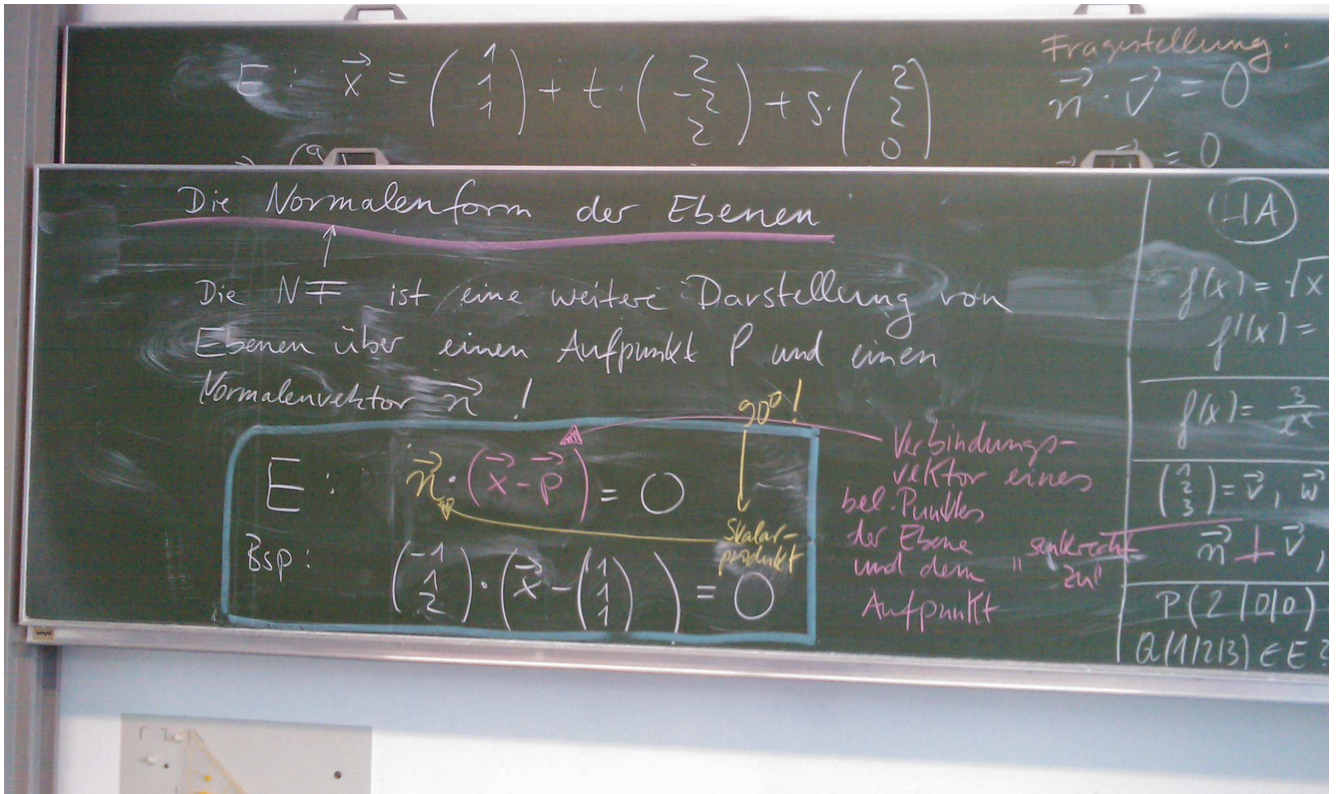 E: x⃗ = (1 1 1) + t · (2 -2 2) + s · (2 2 0)
Fragestellung:
n⃗ · v⃗ = 0
= 0
Die Normalenform der Ebenen
Die NF ist eine weitere Darstellung von
Ebenen über einen Aufpunkt P und einen
Normalenvektor n⃗ !
90° !
E: n⃗ · (x⃗ - p⃗) = 0
Skalar-
produkt
Bsp: (-1 1 2) · (x⃗ - (1 1 1)) = 0
Verbindungs-
vektor eines
bel. Punktes
der Ebene
und dem
Aufpunkt
"senkrecht
zu"
HA
f(x) = √x
f'(x) =
f(x) = 3
(1 2 3) = v⃗, w⃗
n⃗ ⊥ v⃗,
P(2|0|0)
Q(1|2|3) ∈ E?